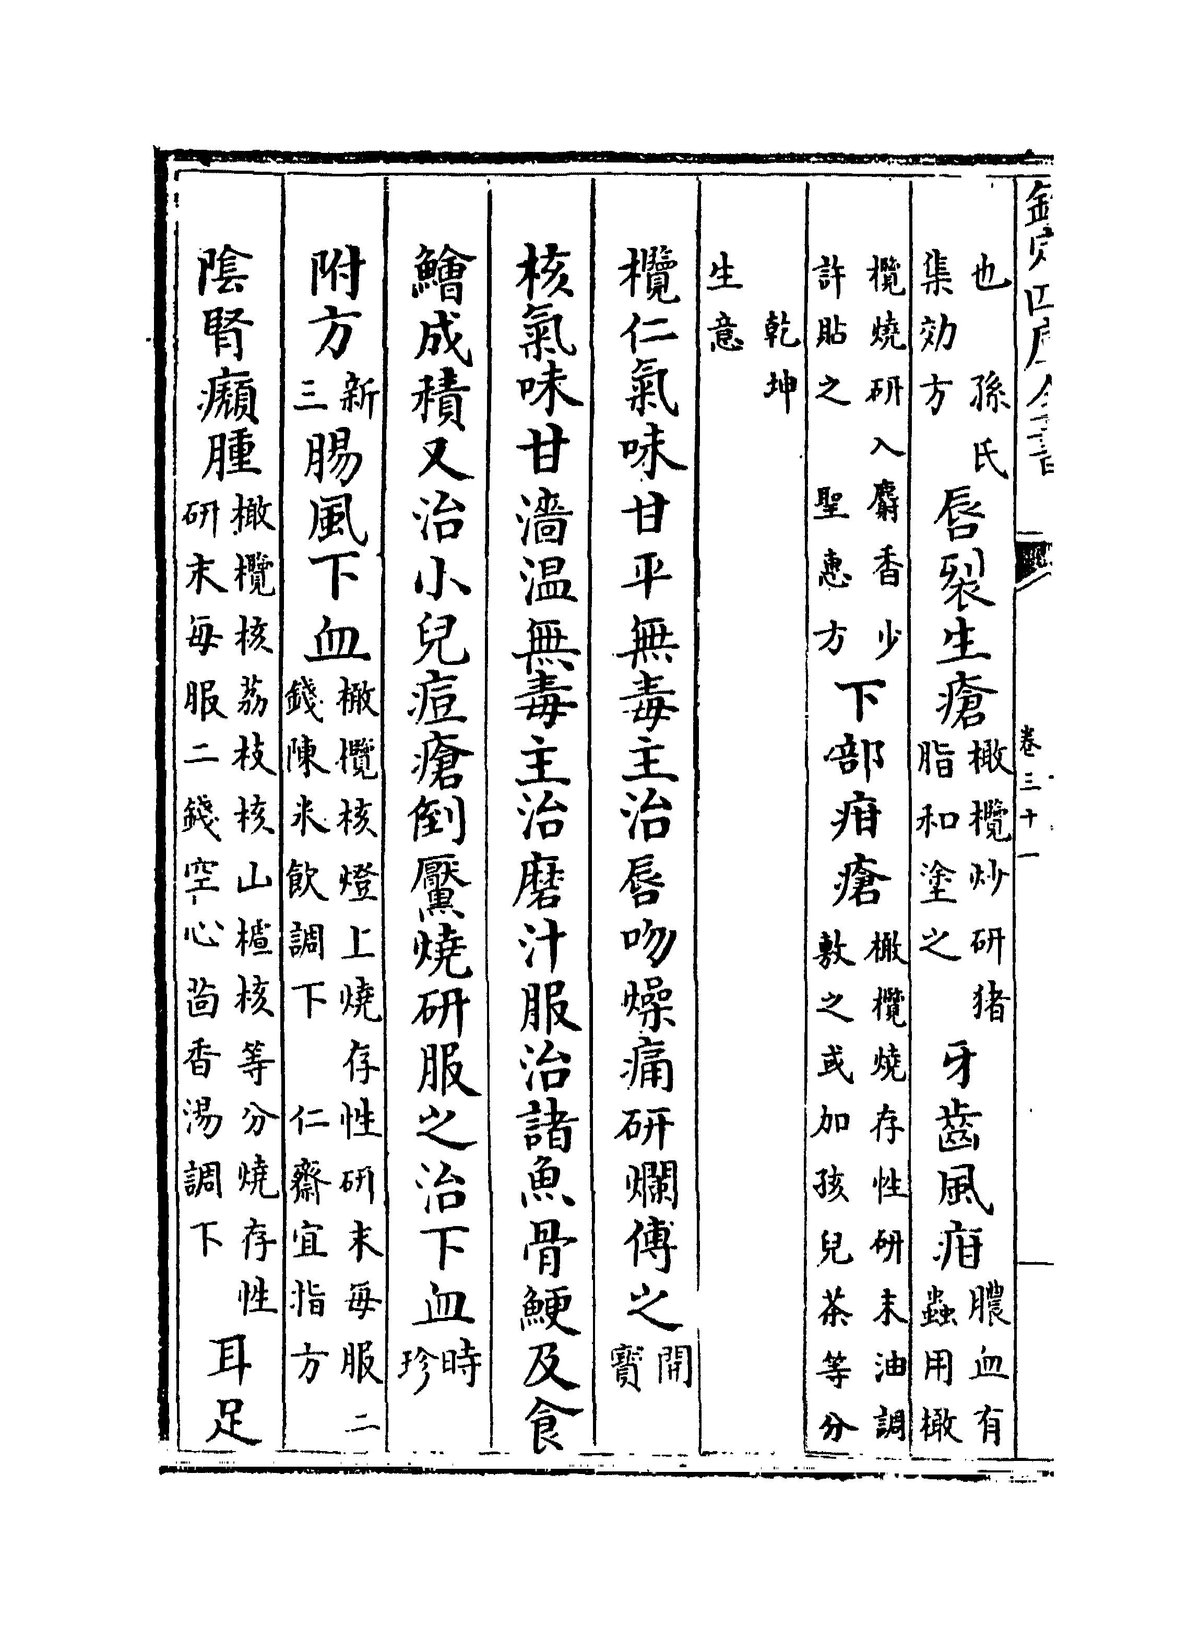 欽定四庫全書 卷三十一
也 孫氏集効方 唇裂生瘡 橄欖炒研猪脂和塗之 牙齒風疳 膿血有蟲用橄
欖燒研入麝香少許貼之 聖惠方 下部疳瘡 橄欖燒存性研末油調敷之或加孩兒茶等分
乾坤生意
欖仁氣味甘平無毒主治唇吻燥痛研爛傅之 開寶
核氣味甘濇温無毒主治磨汁服治諸魚骨鯁及食
鱠成積又治小兒痘瘡倒黶燒研服之治下血 時珍
附方 新三 腸風下血 橄欖核燈上燒存性研末每服二錢陳米飲調下 仁齋宜指方
陰腎㿗腫 橄欖核荔枝核山樝核等分燒存性研末每服二錢空心茴香湯調下 耳足